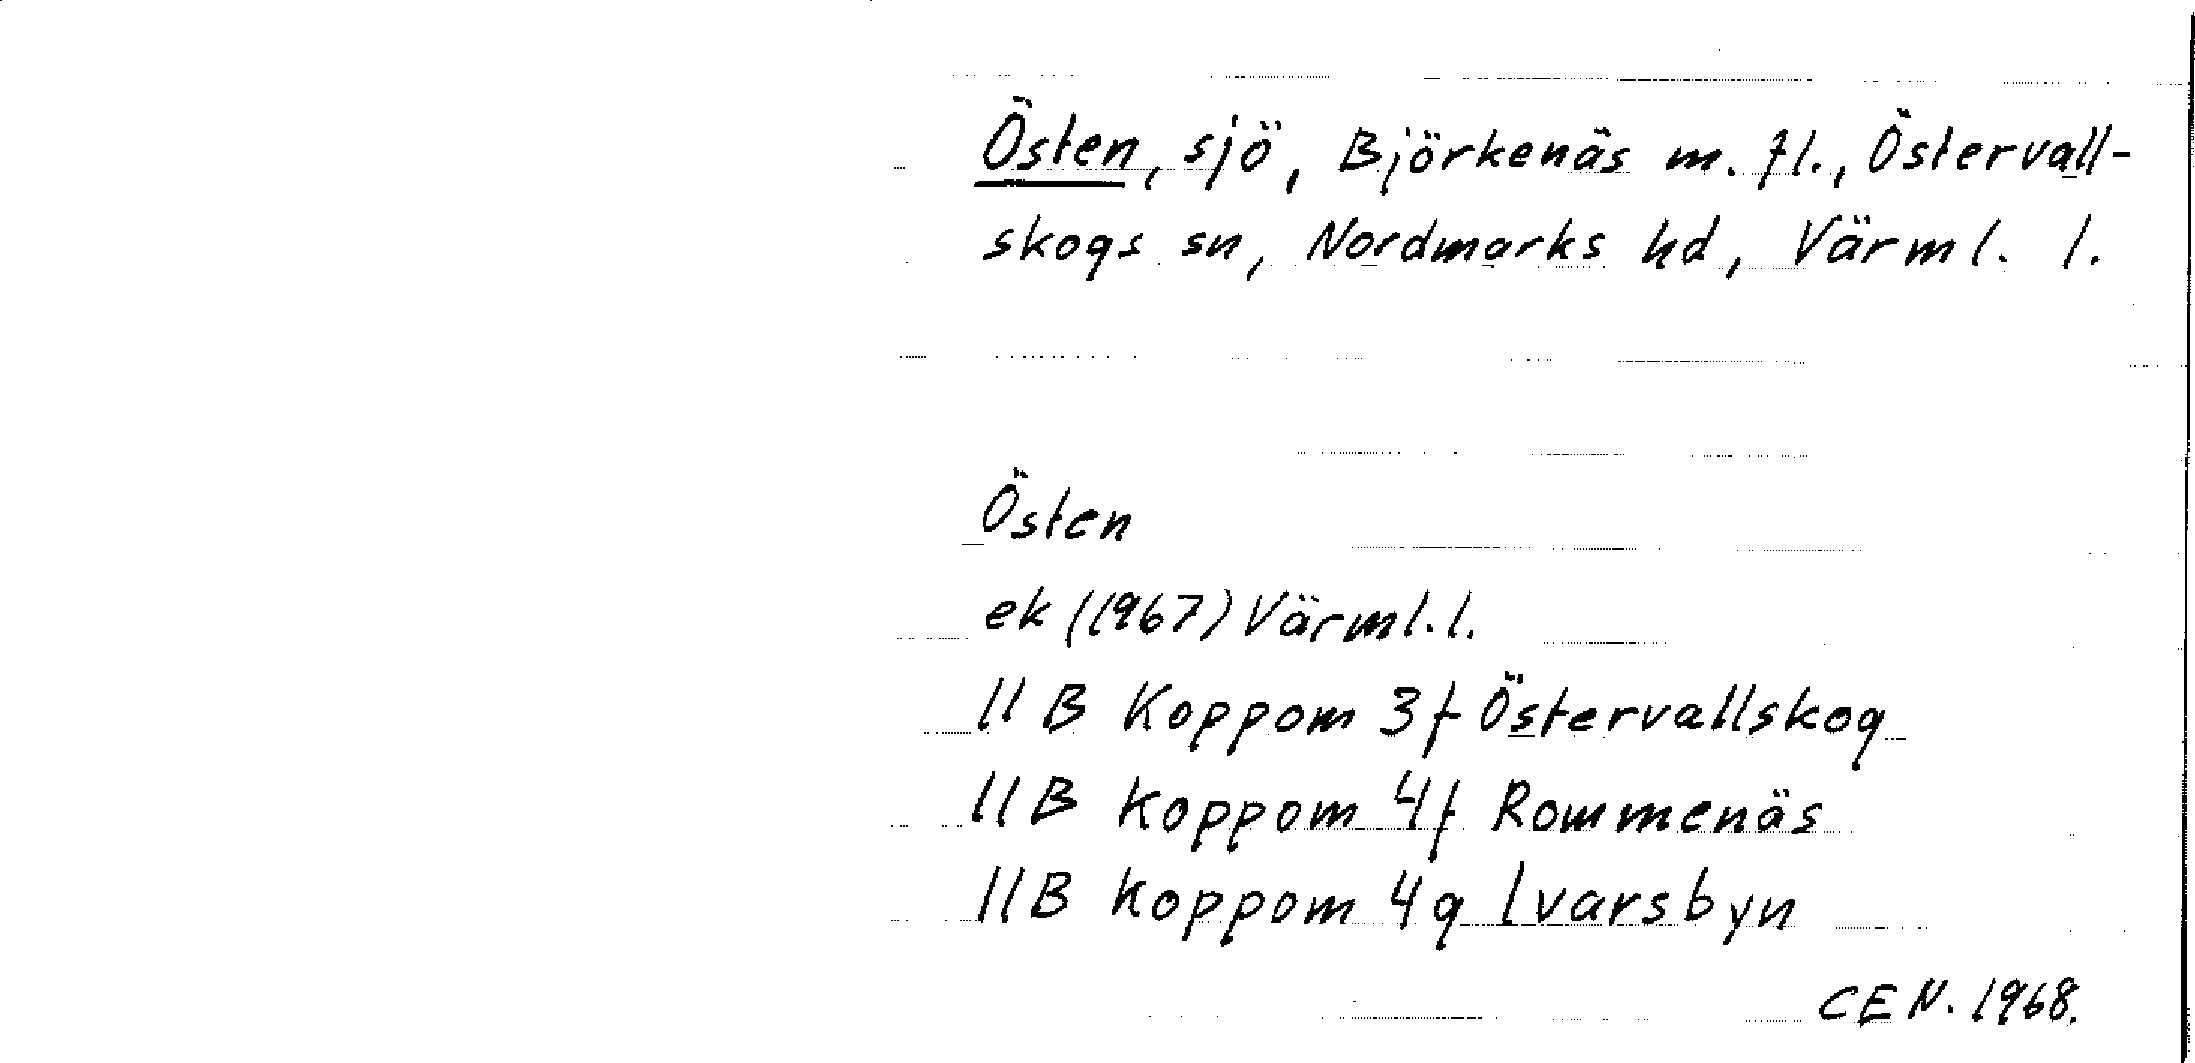 Östen, sjö, Björkenäs m. fl., Östervall-
skogs sn, Nordmarks hd, Värml. l.
Östen
ek (1967) Värml. l.
11 B Koppom 3 f Östervallskog
11 B Koppom 4 f Rommenäs
11 B Koppom 4 g Ivarsbyn
CEN. 1968.